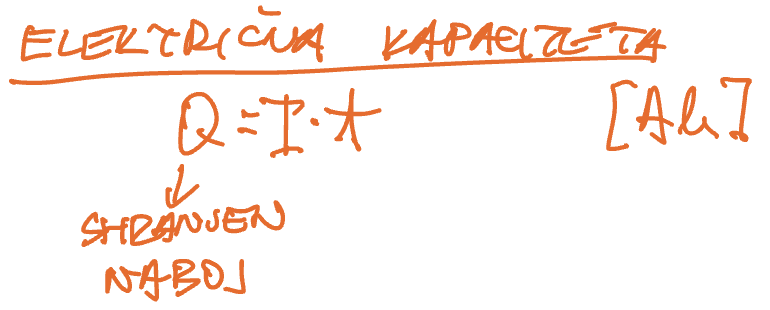 ELEKTRIČNA KAPACITETA
Q = I · t [Ah]
↓
SHRANJEN
NABOJ